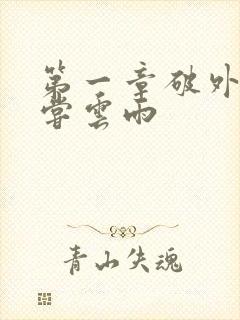 第一章破外
尝雲雨
青山失魂